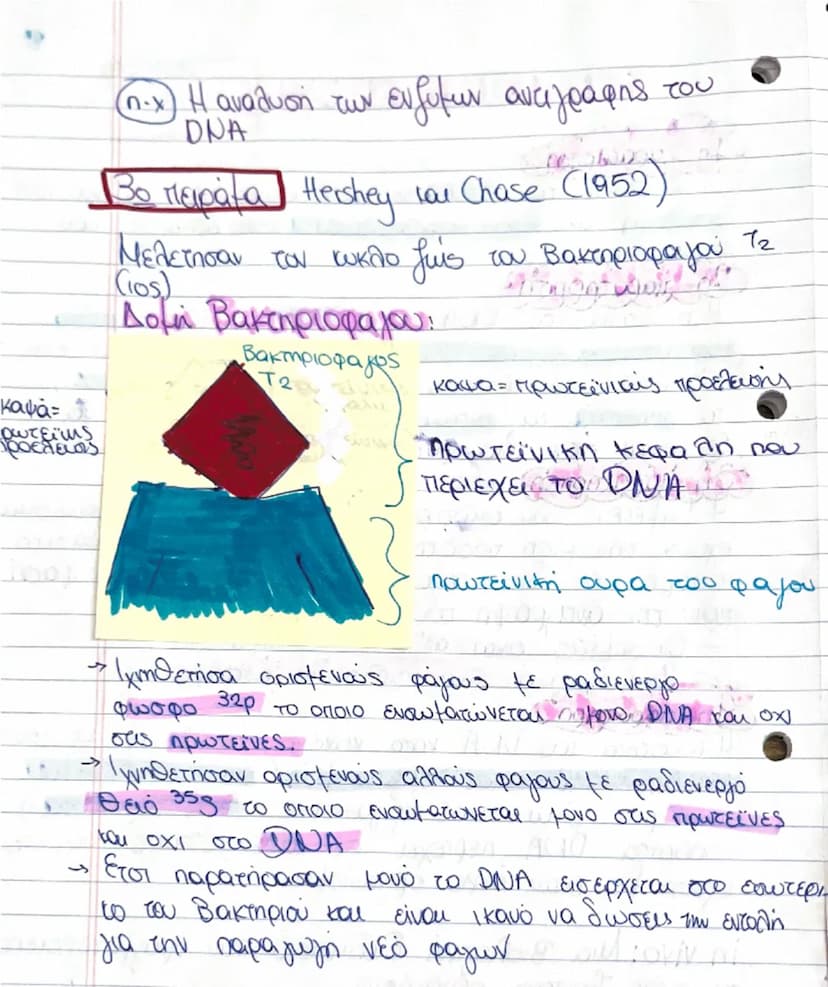 π.χ Η αναλυσή των ενζυμων αντιγραφής του
DNA
3ο πειράμα Hershey και Chase (1952)
Μελετησαν τον κυκλο ζωής του Βακτηριοφαγού T2
(ιος)
Δομή Βακτηριοφαγου:
Βακτηριοφαγος
T2
καψα = πρωτεϊνικής προελευσής
καψά=
ρωτεϊκης
προελευσης
Πρωτεϊνική κεφαλή που
περιεχει το DNA
πρωτεϊνική ουρα του φαγου
→ Ιχνηθετήσα ορισμενούς φάγους με ραδιενεργο
φωσφο 32p το οποιο ενσωματώνεται μονο DNA και οχι
στις πρωτεϊνες.
→ Ιχνηθετήσαν ορισμενούς αλλούς φαγους με ραδιενεργό
θειό 35s το οποιο ενσωματωνεται μονο στις πρωτεϊνες
και οχι στο DNA
→ Ετσι παρατήρασαν μονό το DNA εισερχεται στο εσωτερι
κο του Βακτηριού και είναι ικανό να δωσεις την εντολή
για την παραγωγή νεό φαγων